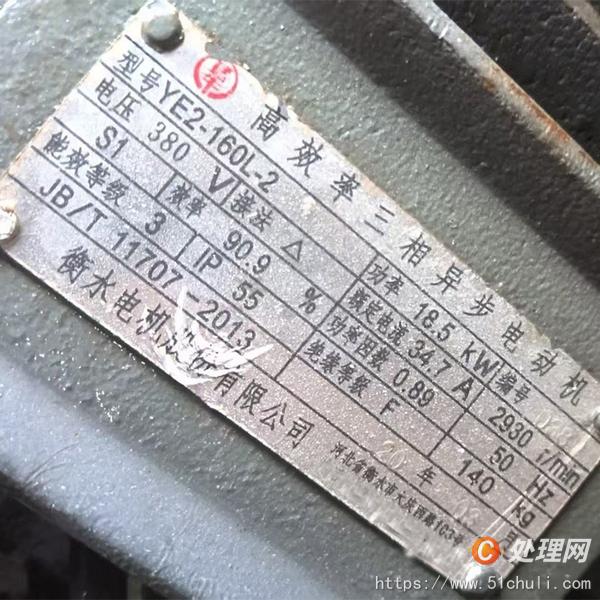 高效率三相异步电动机
型号 YE2-160L-2 功率 18.5 kW 编号
电压 380 V 接法 △ 额定电流 34.7 A 2930 r/min
S1 效率 90.9 % 功率因数 0.89 50 Hz
能效等级 3 IP 55 绝缘等级 F 140 kg
JB/T 11707-2013 20 年
衡水电机 有限公司 河北省衡水市大庆西路103号
C 处理网
https://www.51chuli.com